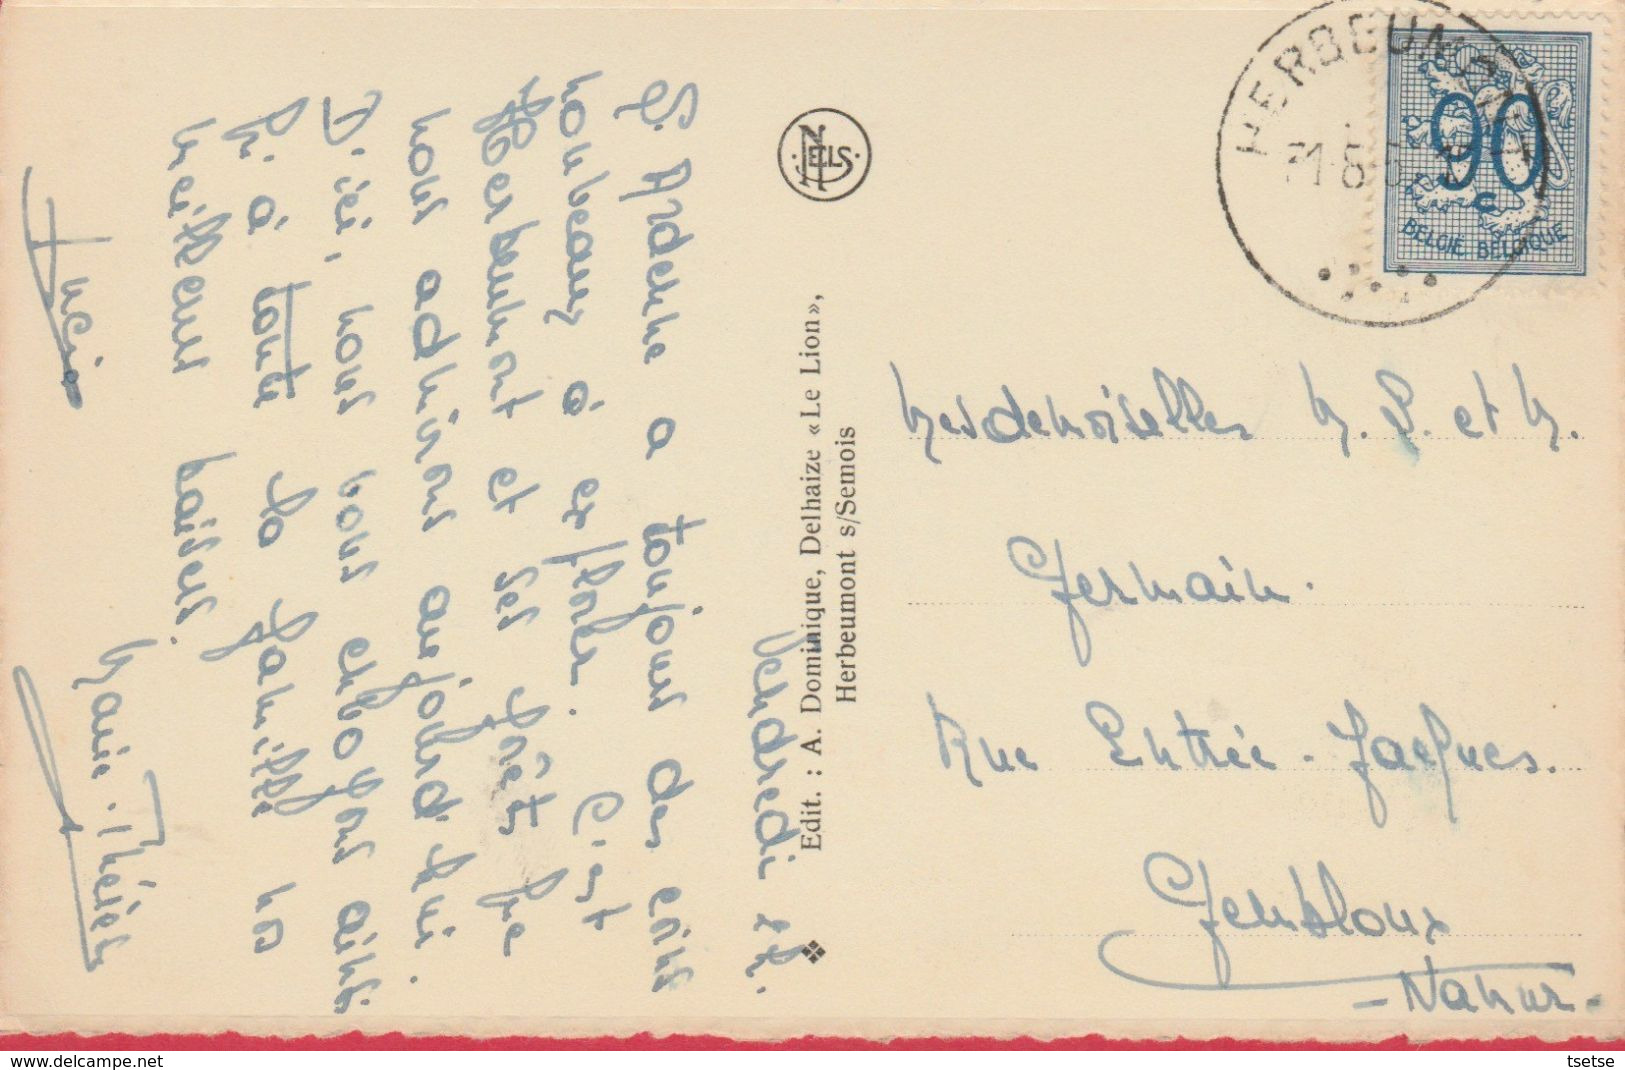 Vendredi et.
L'Ardenne a toujours des coins
nouveaux à explorer. C'est
Herbeumont et ses forêts que
nous admirons aujourd'hui.
D'ici, nous vous envoyons ainsi
qu'à toute la famille nos
meilleurs baisers.
Marie-Thérèse
Lucie
NELS
Edit. : A. Dominique, Delhaize « Le Lion »,
Herbeumont s/Semois
HERBEUMONT
31-8
90
C
BELGIË BELGIQUE
Mesdemoiselles M. L. et M.
Germain.
Rue Entrée-Jacques.
Gembloux
- Namur -
delcampe.net
tsetse